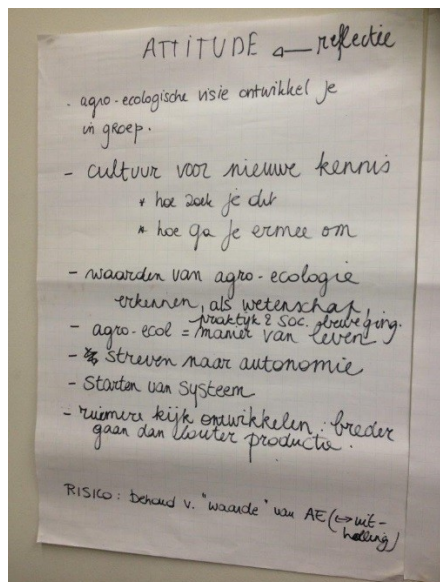 ATTITUDE ← reflectie
. agro-ecologische visie ontwikkel je
in groep.
- cultuur voor nieuwe kennis
* hoe zoek je dit
* hoe ga je ermee om
- waarden van agro-ecologie
erkennen, als wetenschap,
praktijk & soc. beweging.
- agro-ecol = manier van leven
- streven naar autonomie
- starten van systeem
- ruimere kijk ontwikkelen : breder
gaan dan louter productie.
RISICO: behoud v. "waarde" van AE (↔ uit-
holling)